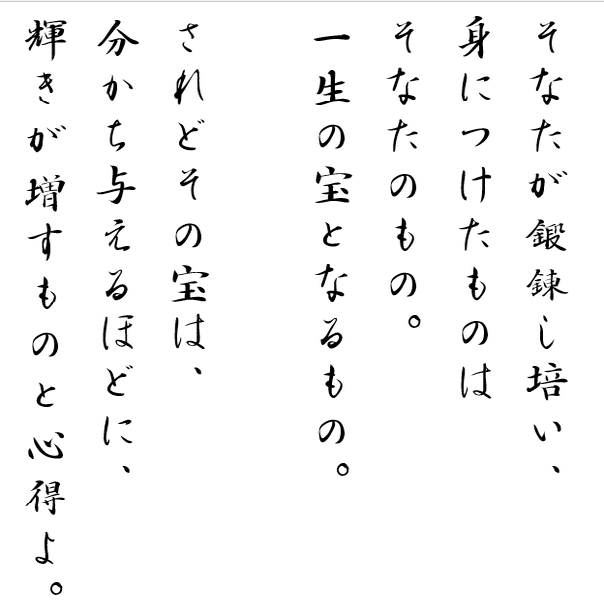 そなたが鍛錬し培い、
身につけたものは
そなたのもの。
一生の宝となるもの。
されどその宝は、
分かち与えるほどに、
輝きが増すものと心得よ。